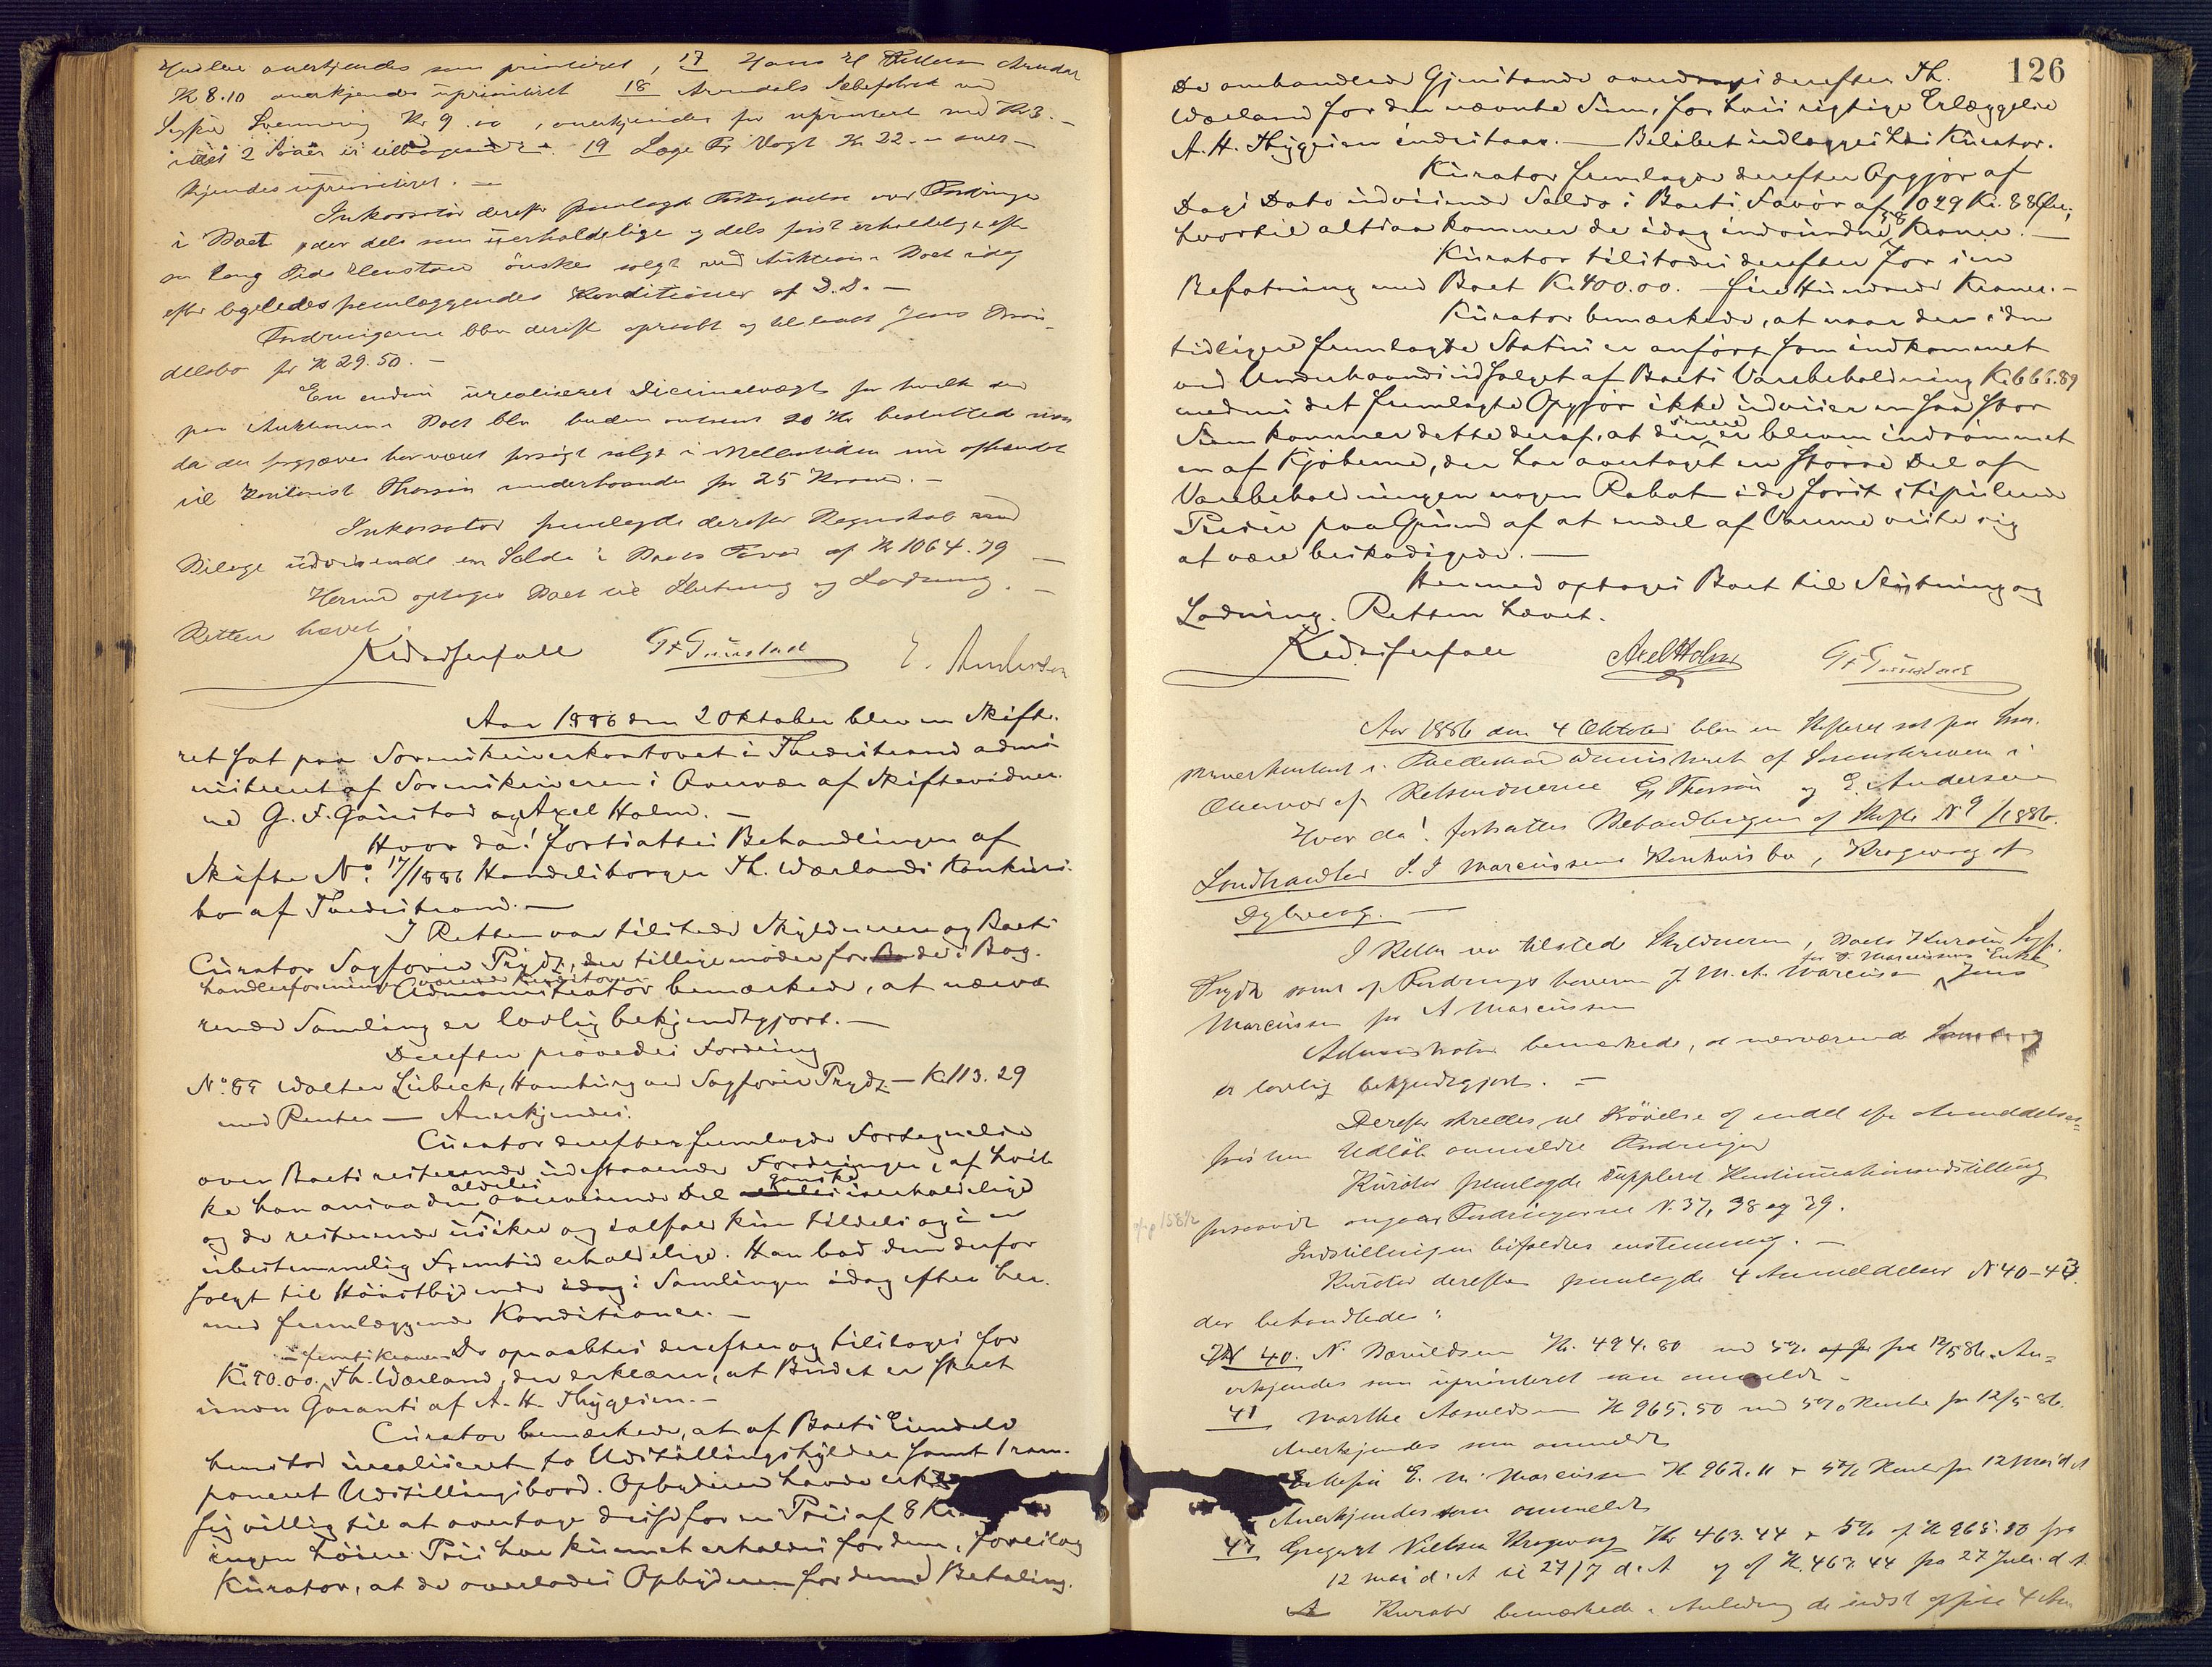 Hndlere anerkjendes som prioriteret, 17 Hans H Arendal
Kr 8.10 anerkjendes uprioriteret 18 Arendals Sæbefabrik ved
Sagfører Svenning Kr 9.00, anerkjendes for uprioriteret med Kr 3.
idet 2 er tilbagesendt. 19 Lage Fr Vogt Kr 22.- aner-
kjendes uprioriteret. —
Inkassator derefter fremlagde Fortegnelse over Fordringer
i Boet, der dels som uerholdelige og dels først erholdelige efter
en lang Tids Henstand ønskes solgt ved Auktion i Boet idag
efter ligeledes fremlæggendes Konditioner af D.D. —
Fordringerne blev derefter opraabt og tilslaaet Jens
delsbo for Kr 29.50. —
En endnu urealiseret Decimalvægt for hvilken der
paa Auktionen i Boet blev buden 20 Kr besluttedes
da den forgjæves har været forsøgt solgt i Mellemtiden nu afhændet
til Thorsen underhaanden for 25 Kroner. —
Inkassator fremlagde derefter Regnskab med
Bilage udvisende en Saldo i Boets Favør af Kr 1064.79 —
Hermed optages Boet til Slutning og Lodning. —
Retten hævet.
G F Gunstad E. Andersen
Aar 1886 den 2 Oktober blev en Skifte-
ret sat paa Sorenskriverkontoret i Tvedestrand admi
nistreret af Sorenskriveren i Overvær af Skiftevidner-
ne G. F. Gunstad og Axel Holm. —
Hvor da! fortsattes Behandlingen af
Skifte No. 17/1886 Handelsborger Th. Wærlands Konkurs-
bo af Tvedestrand. —
I Retten var tilstede Skyldneren og Boets
Curator Sagfører Prydz, der tillige møder for de i Bog-
handlerforeningen værende Kreditorer.
Administrator bemærkede, at nærvæ
rende Samling er lovlig bekjendtgjort. —
Derefter prøvedes Fordring
No. 55 Walter Lübeck, Hamburg ved Sagfører Prydz — Kr. 113.29
med Renter — Anerkjendes.
Curator derefter fremlagde Fortegnelse
over Boets resterende udestaaende Fordringer, af hvil
ke han ansaa den aldeles overveiende Del ganske uerholdelige
og de resterende usikre og ialfald kun tildels og i en
ubestemmelig Fremtid erholdelige. Han bad dem derfor
solgt til Høistbydende idag i Samlingen idag efter her-
med fremlæggende Konditioner. —
De opraabtes derefter og tilsloges for
Kr. 50.00 — femti Kroner Th. Wærland, der erklærer, at Budet er skeet
under Garanti af A. H. Thygesen. —
Curator bemærkede, at af Boets Eiendele
henstod urealiseret to Udstillingshylder samt 1 ram-
poneret Udstillingsbord. Opbyderen havde erkl
sig villig til at overtage disse for en Pris af 8 Kr.
ingen høiere Pris har kunnet erholdes for dem, foreslog
Kurator, at de overlodes Opbyderen for denne Betaling.
126
De omhandlede Gjenstande overdroges derefter Th.
Wærland for den nævnte Sum, for hvis rigtige Erlæggelse
A. H. Thygesen indestaar. — Beløbet indlægges hos Kurator.
Kurator fremlagde derefter Opgjør af
Dags Dato udvisende Saldo i Boets Favør af 1029 Kr. 88 Øre,
hvortil altsaa kommer de idag indvundne 58 Kroner. —
Kurator tilstodes derefter for sin
Befatning med Boet Kr. 400.00. — fire Hundrede Kroner. —
Kurator bemærkede, at naar der i den
tidligere fremlagte Status er anført som indkommet
ved Underhaandsudsalget af Boets Varebeholdning Kr. 666.89
medens det fremlagte Opgjør ikke udviser en saa stor
Sum kommer dette deraf, at der senere er bleven indrømmet
en af Kjøberne, der har overtaget en større Del af
Varebeholdningen nogen Rabat i de først stipulerede
Priser paa Grund af at endel af Varerne viste sig
at være beskadigede. —
Hermed optages Boet til Slutning og
Lodning. Retten hævet.
Axel Holm G F Gunstad
Aar 1886 den 4 Oktober blev en Skifteret sat paa Soren-
skriverkontoret i Tvedestrand administreret af Sorenskriveren i
Overvær af Retsvidnerne G. Thorsen og E. Andersen
Hvor da! fortsattes Behandlingen af Skifte No 9/1886.
Landhandler S. J. Marcussens Konkursbo, Krogevaag af
Dybvaag. —
I Retten var tilstede Skyldneren, Boets Kurator Sagf.
Prydz samt af Fordringshaverne J M. A. Marcussen for T. Marcussens Enke Jens
Marcussen for A Marcussen
Administrator bemærkede, at nærværende Samling
er lovlig bekjendtgjort. —
Derefter skredes til Prøvelse af endel efter Anmeldelses-
fristens Udløb anmeldte Fordringer
Kurator fremlagde suppleret Kontinuationsindstilling
forsaavidt angaar Fordringerne No 37, 38 og 39.
Indstillingen bifaldtes enstemmig. —
Kurator derefter fremlagde 4 Anmeldelser No 40-43.
der behandledes:
40. N. Kr. 494.80 med 5% fra 12/5 86. An-
erkjendes som uprioriteret som anmeldt -
41 Marthe Kr 965.50 med 5% Rente fra 12/5 86.
Anerkjendes som anmeldt
E. M. Marcussen Kr 962.11 + 5% Rente fra 12 Mai d. A
Anerkjendes som anmeldt
43 Gregert Nielsen Krogevaag Kr 463.44 + 5% af Kr fra
12 Mai d. A til 27/7 d. A og af Kr. 463.44 fra 27 Juli d A
Kurator bemærkede i Anledning de sidst 4